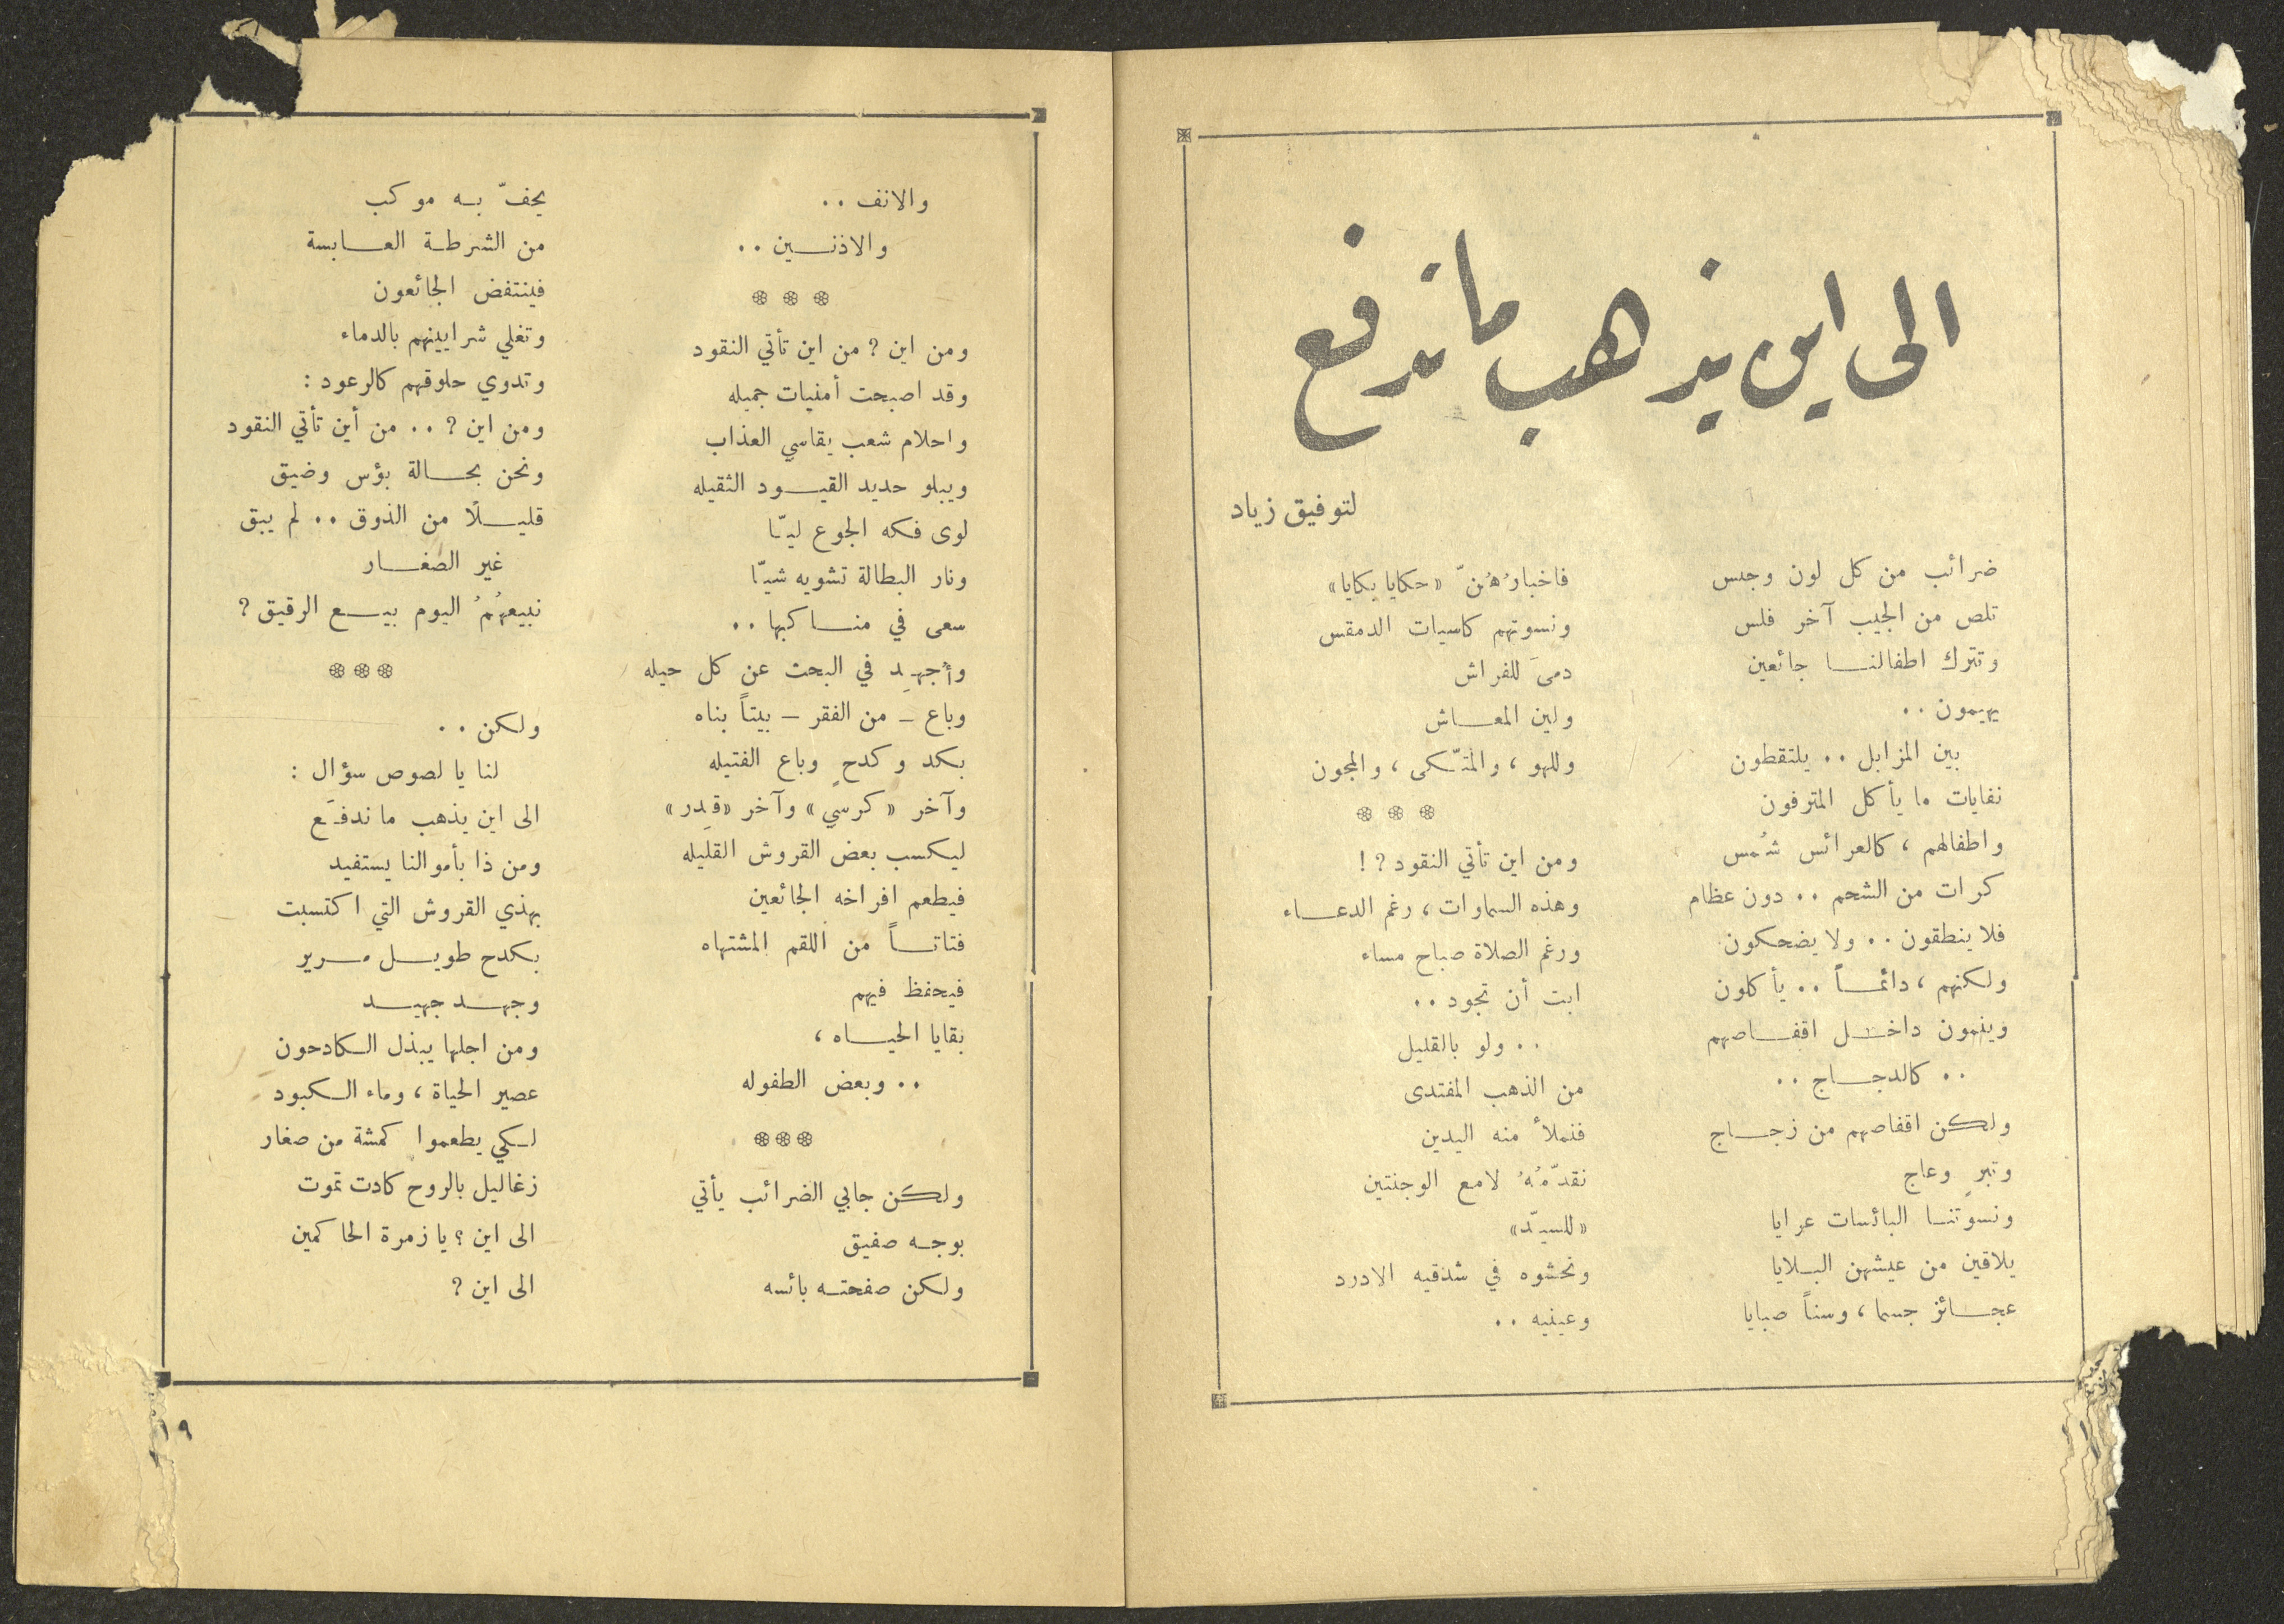 الى اين يذهب ما ندفع
لتوفيق زياد
ضرائب من كل لون وجنس
تلص من الجيب آخر فلس
وتترك اطفالنا جائعين
يهيمون ..
بين المزابل .. يلتقطون
نفايات ما يأكل المترفون
واطفالهم ، كالعرائس شُمس
كرات من الشحم .. دون عظام
فلا ينطقون .. ولا يضحكون
ولكنهم ، دائماً .. يأكلون
وينمون داخل اقفاصهم
.. كالدجاج ..
ولكن اقفاصهم من زجاج
وتبرٍ وعاج
ونسوتنا البائسات عرايا
يلاقين من عيشهن البلايا
عجائز جسما ، وسناً صبايا
فاخبارُهُنّ «حكايا بكايا»
ونسوتهم كاسيات الدمقس
دمىَ للفراش
ولين المعاش
وللهو ، والمتّكى ، والمجون
***
ومن اين تأتي النقود ?!
وهذه السماوات ، رغم الدعاء
ورغم الصلاة صباح مساء
ابت أن تجود ..
.. ولو بالقليل
من الذهب المفتدى
فنملأ منه اليدين
نقدّمُهُ لامع الوجنتين
«للسيّد»
ونحشوه في شدقيه الادرد
وعينيه ..
والانف ..
والاذنين ..
***
ومن اين ? من اين تأتي النقود
وقد اصبحت أمنيات جميله
واحلام شعب يقاسي العذاب
ويبلو حديد القيود الثقيله
لوى فكه الجوع ليّا
ونار البطالة تشويه شيّا
سعى في مناكبها ..
وأُجهِد في البحث عن كل حيله
وباع - من الفقر - بيتاً بناه
بكد وكدحٍ وباع الفتيله
وآخر «كرسي» وآخر «قِدر»
ليكسب بعض القروش القليله
فيطعم افراخه الجائعين
فتاتاً من اللقم المشتهاه
فيحفظ فيهم
بقايا الحياه ،
.. وبعض الطفوله
***
ولكن جابي الضرائب يأتي
بوجه صفيق
ولكن صفحته بائسه
يحفّ به موكب
من الشرطة العابسة
فينتفض الجائعون
وتغلي شرايينهم بالدماء
وتدوي حلوقهم كالرعود :
ومن اين ? .. من أين تأتي النقود
ونحن بحالة بؤس وضيق
قليلًا من الذوق .. لم يبق
غير الصغار
نبيعهُمُ اليوم بيع الرقيق ?
***
ولكن ..
لنا يا لصوص سؤال :
الى اين يذهب ما ندفَع
ومن ذا بأموالنا يستفيد
بهذي القروش التي اكتسبت
بكدح طويل مرير
وجهد جهيد
ومن اجلها يبذل الكادحون
عصير الحياة ، وماء الكبود
لكي يطعموا كمشة من صغار
زغاليل بالروح كادت تموت
الى اين ؟ يا زمرة الحاكمين
الى اين ?
١٩